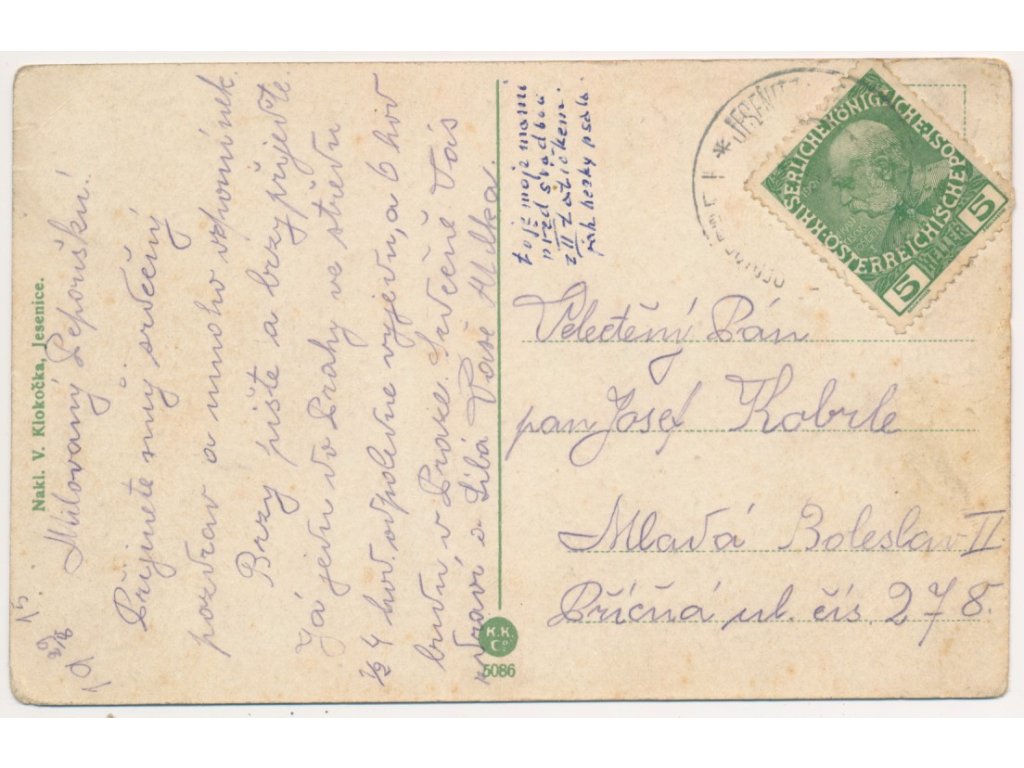 Nakl. V. Klokočka, Jesenice.
Milovaný Pepoušku!
Přijmete můj srdečný
pozdrav a mnoho vzpomínek.
Brzy pište a brzy přijeďte.
Já jedu do Prahy ve středu
½ 4 hod. odpoledne vyjedu, a 6 hod
budu v Praze. Srdečně Vás
zdraví a líbá Vaše Milka.
to je moje mami
před svadbou
z II tatíčkem.
jak hezky psala.
* JESENI
KAISERLICHE KÖNIGLICHE ÖSTERREICHISCHE POST
5 HELLER 5
Velectěný Pán
pan Josef Kobrle
Mladá Boleslav II
Příčná ul. čís. 278.
K.K.
Co
5086